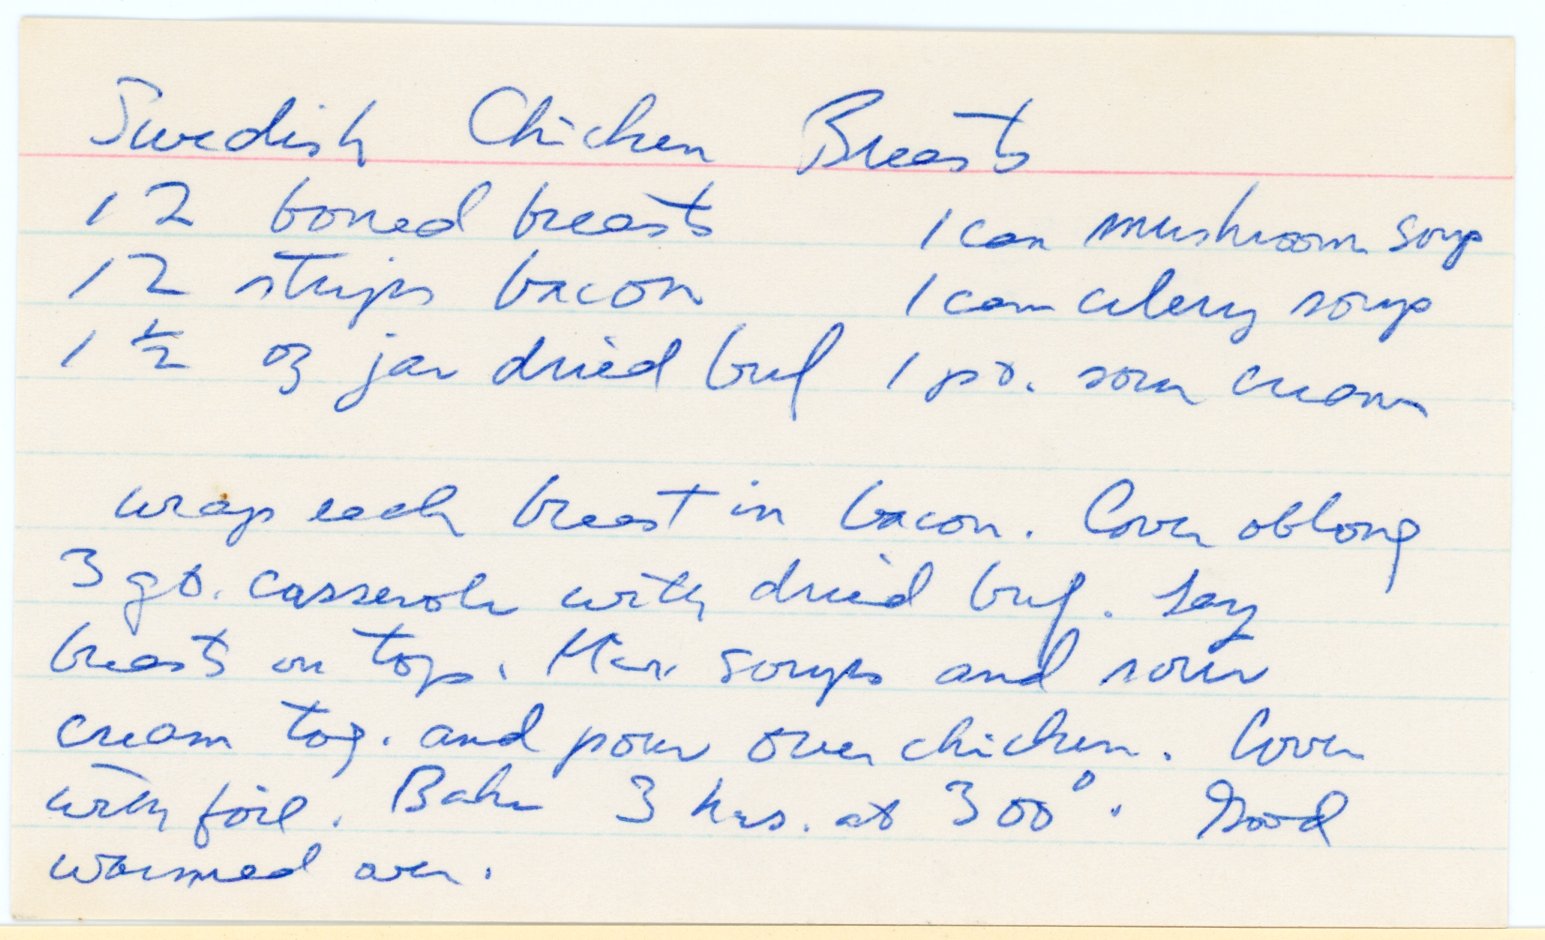 Swedish Chicken Breasts
12 boned breasts 1 can mushroom soup
12 strips bacon 1 can celery soup
1 1/2 oz jar dried beef 1 pt. sour cream
wrap each breast in bacon. Cover oblong
3 qt. casserole with dried beef. Lay
breasts on top. Mix soups and sour
cream tog. and pour over chicken. Cover
with foil. Bake 3 hrs. at 300°. Good
warmed over.